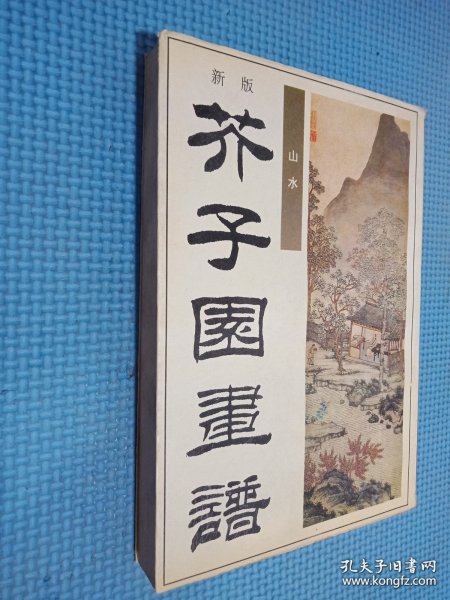 新版
芥子園畫譜
山水
孔夫子旧书网
www.kongfz.com